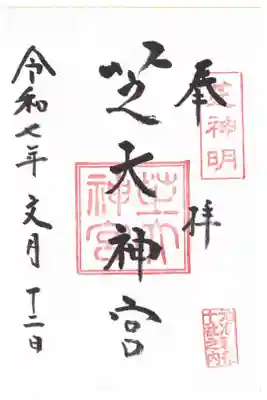 芝神明
奉拝
十社之内
芝大神宮
芝大
神宮
令和七年 文月 十二日